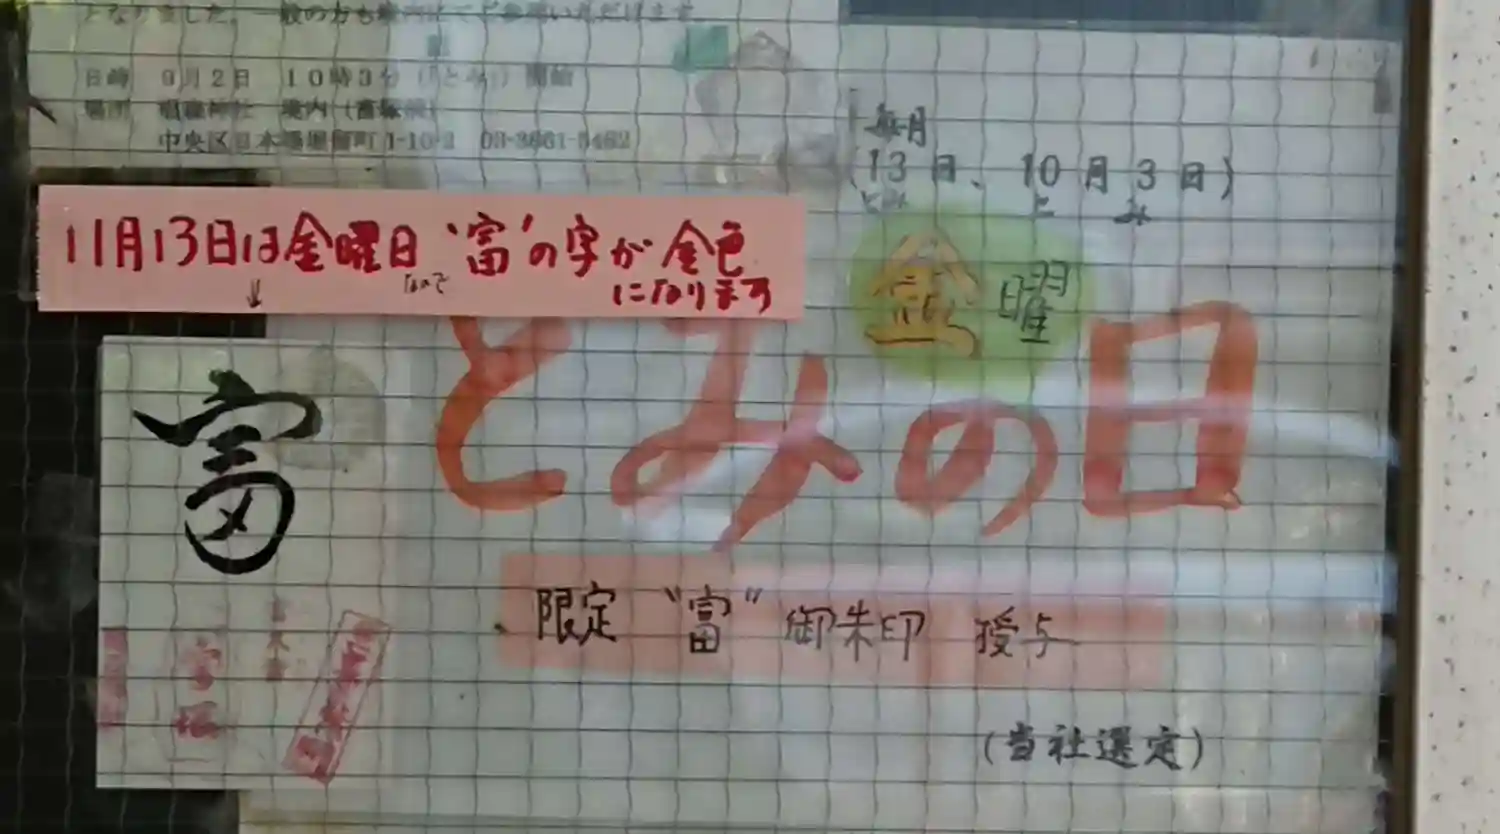 となりました。一般の方も境内にてご参列いただけます
日時 9月2日 10時3分（「とみ」）開始
場所 椙森神社 境内（富塚前）
中央区日本橋堀留町1-10-2 03-3661-5462
毎月
(13日、10月3日)
とみ と み
11月13日は金曜日 なので '富'の字が金色
になります
↓
金曜
とみの日
富
限定 "富" 御朱印 授与
富塚
(当社選定)